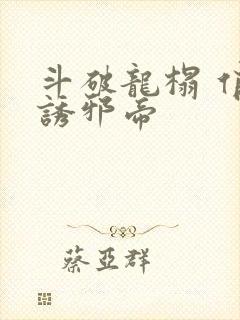 斗破龍榻 俏
誘邪帝
蔡亞群